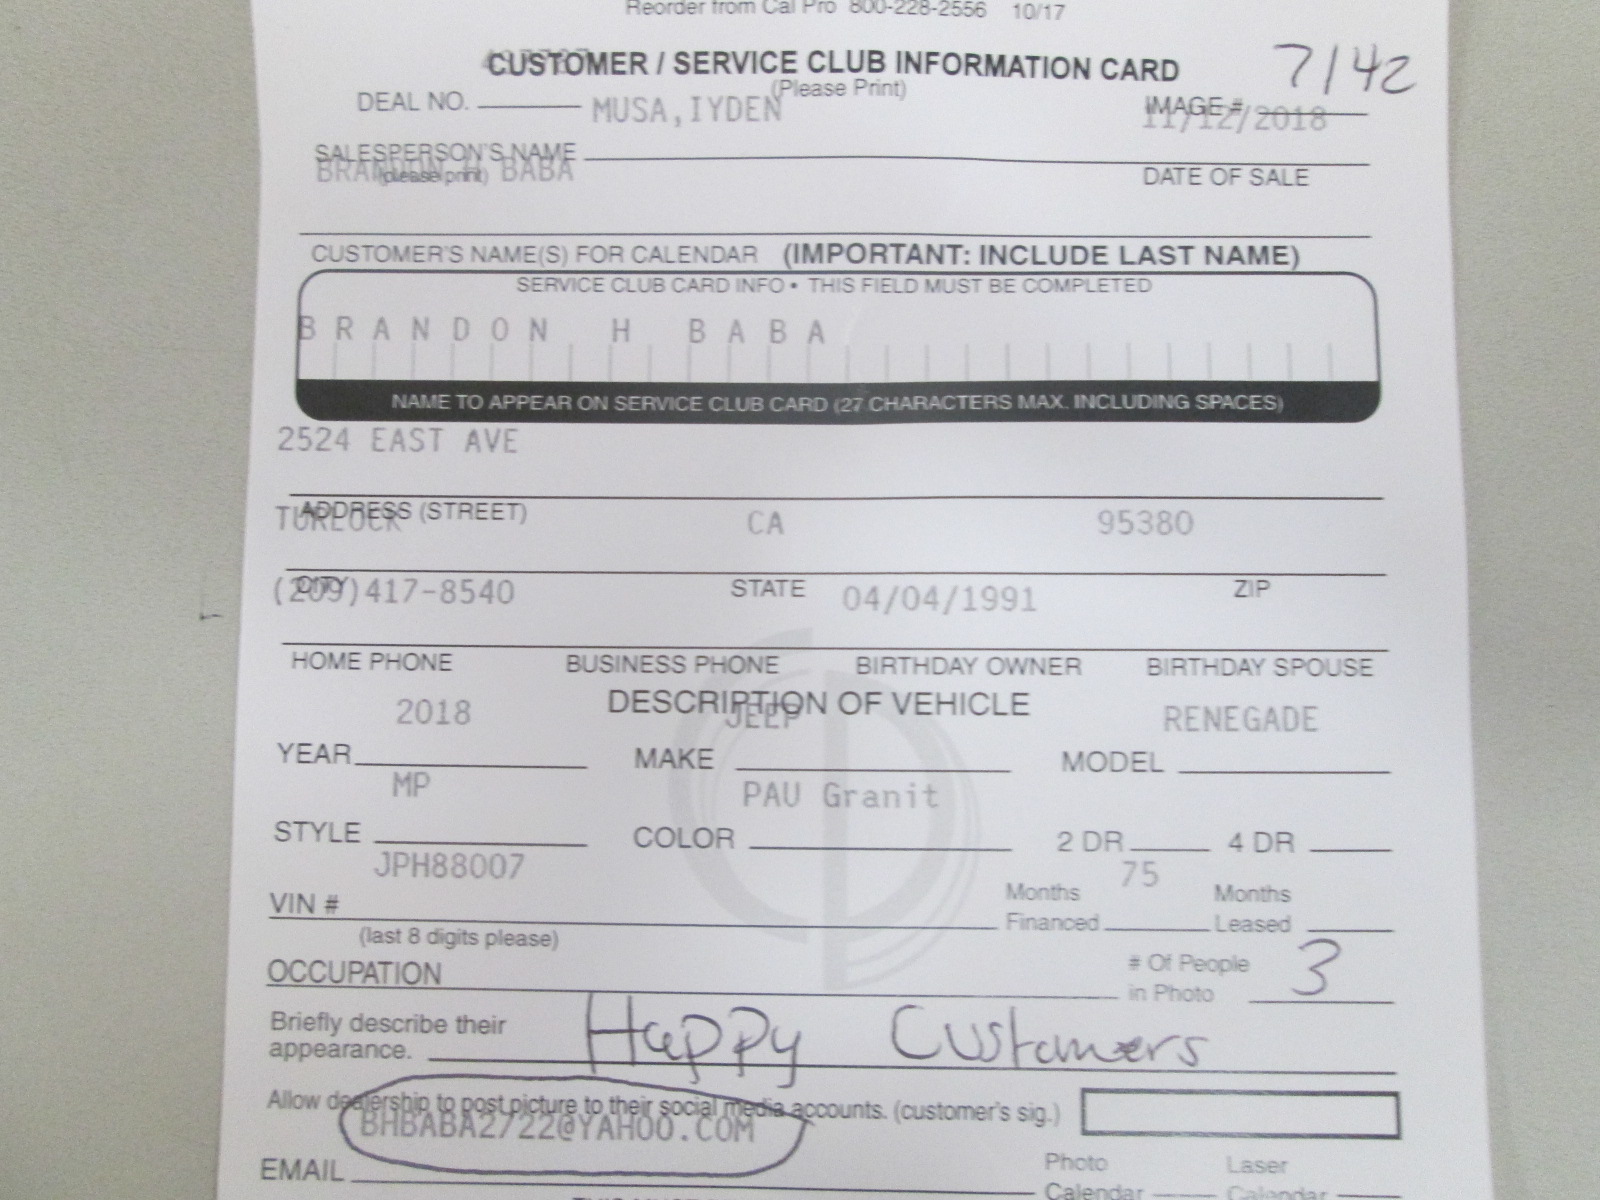 Reorder from Cal Pro 800-228-2556 10/17
CUSTOMER / SERVICE CLUB INFORMATION CARD 7142
(Please Print)
DEAL NO. MUSA,IYDEN IMAGE #
11/12/2018
SALESPERSON'S NAME
BRANDON H BABA
(please print) DATE OF SALE
CUSTOMER'S NAME(S) FOR CALENDAR (IMPORTANT: INCLUDE LAST NAME)
SERVICE CLUB CARD INFO • THIS FIELD MUST BE COMPLETED
BRANDON H BABA
NAME TO APPEAR ON SERVICE CLUB CARD (27 CHARACTERS MAX. INCLUDING SPACES)
2524 EAST AVE
ADDRESS (STREET)
TURLOCK CA 95380
CITY STATE ZIP
(209)417-8540 04/04/1991
HOME PHONE BUSINESS PHONE BIRTHDAY OWNER BIRTHDAY SPOUSE
DESCRIPTION OF VEHICLE
2018 JEEP RENEGADE
YEAR MAKE MODEL
MP PAU Granit
STYLE COLOR 2 DR 4 DR
JPH88007 75
VIN # Months Financed Months Leased
(last 8 digits please)
OCCUPATION # Of People in Photo 3
Briefly describe their appearance. Happy Customers
Allow dealership to post picture to their social media accounts. (customer's sig.)
BHBABA2722@YAHOO.COM
EMAIL Photo Calendar Laser Calendar